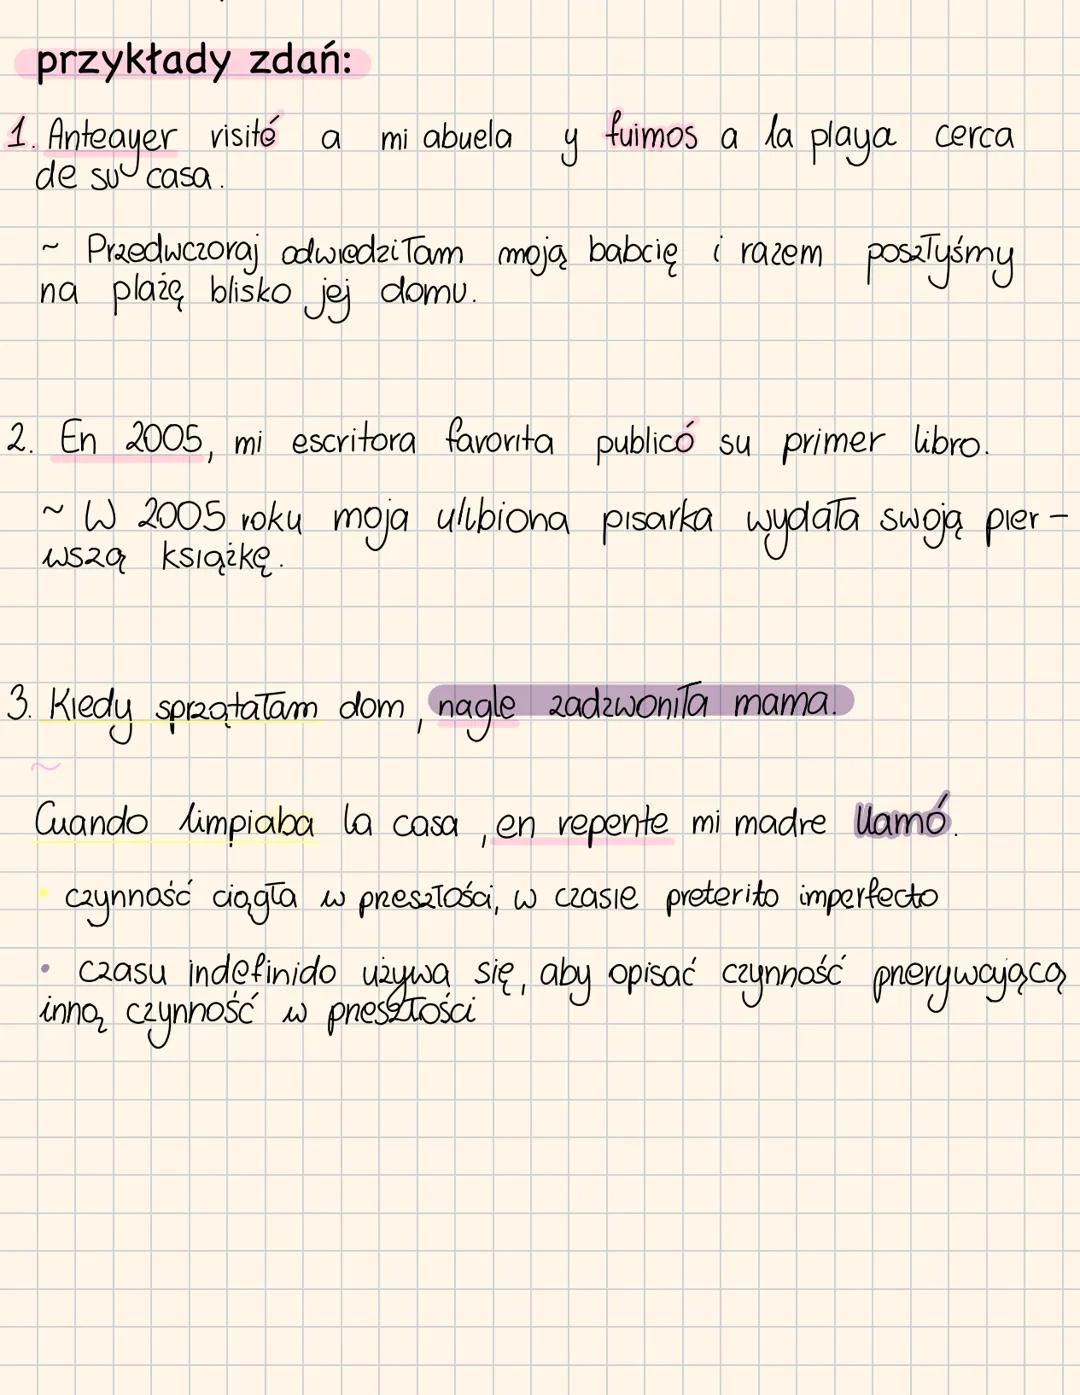 przykłady zdań:
1. Anteayer visité a mi abuela y fuimos a la playa cerca
de su casa.
~ Przedwczoraj odwiedziłam moją babcię i razem poszłyśmy
na plażę blisko jej domu.
2. En 2005, mi escritora favorita publicó su primer libro.
~ W 2005 roku moja ulubiona pisarka wydała swoją pier-
wszą książkę.
3. Kiedy sprzątałam dom, nagle zadzwoniła mama.
~
Cuando limpiaba la casa, en repente mi madre llamó.
• czynność ciągła w przeszłości, w czasie preterito imperfecto
• czasu indefinido używa się, aby opisać czynność przerywającą
inną czynność w przeszłości